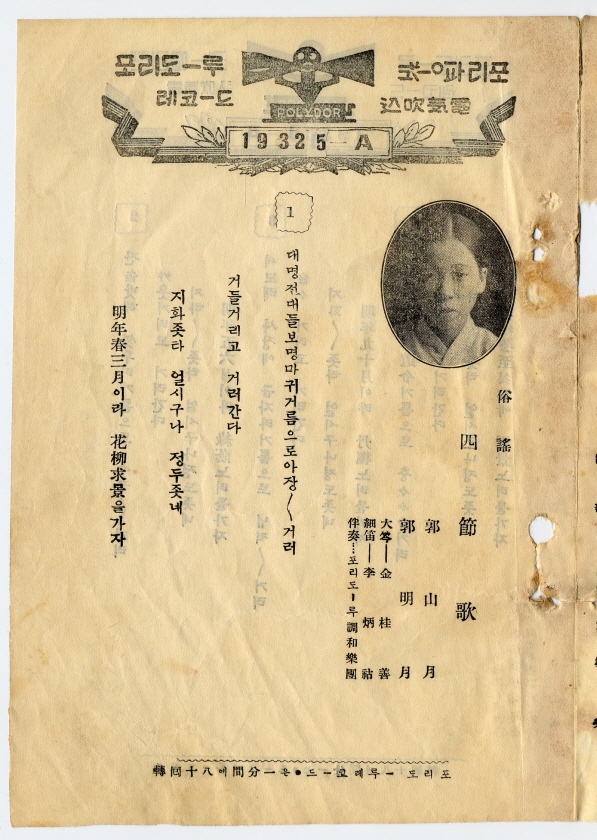 포리도—루
레코—드
電氣吹込
POLYDOR
19325—A
俗謠
四節歌
郭山月
郭明月
大笒—金桂善
細笛—李炳祜
伴奏…포리도—루調和樂團
1
대명전대들보명마귀거름으로아장〱거려
거들거리고 거러간다
지화좃타 얼시구나 정두좃네
明年春三月이라 花柳求景을가자
포리도—루레코—드●은一分間에八十回轉